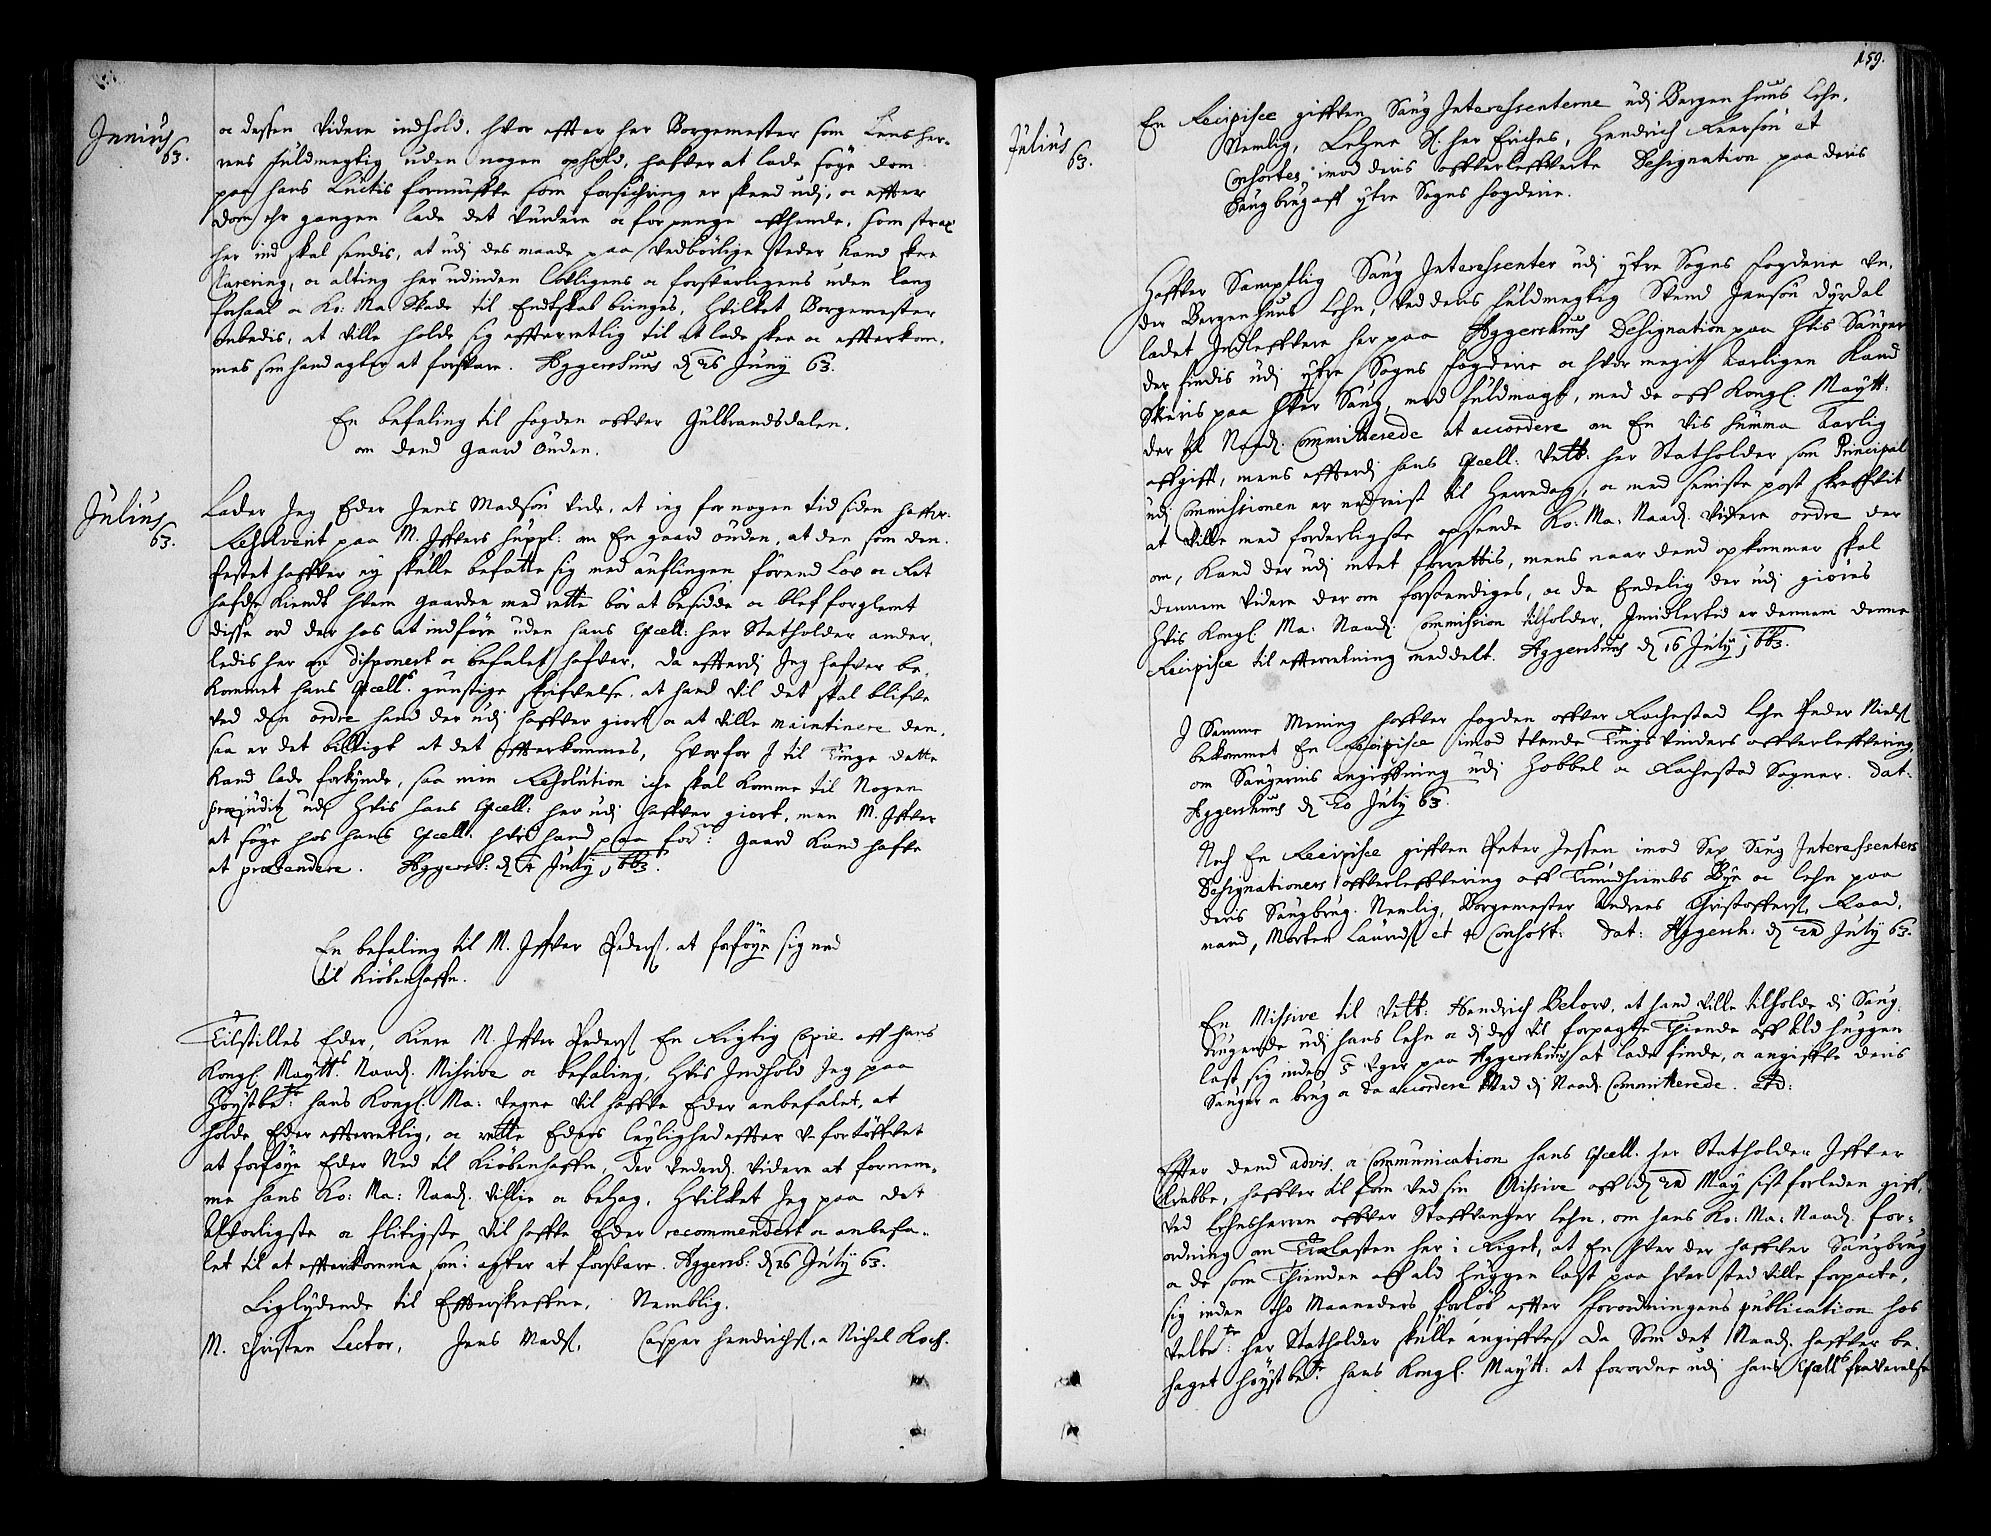 Junius
63.
oc dessen videre indhold, hvor effter her Borgemester som Lensher-
rens fuldmegtig uden nogen ophold, hafver at lade søge dom
paa hans Luctis formuffve som forsichring er skeed udj, oc effter
dom ehr gangen lade det vurdere oc for penge affhende, som strax
her ind skal sendis, at udj des maade paa vedbørlige steder kand skee
Clarering, oc alting her udinden lovligens oc forsvarligens uden lang
forhaal oc Ko: Ma: Skade til Endtskab bringes, hvilket Borgemester
ombedis, at ville holde sig effterretlig til at lade skee oc effterkom-
mes som hand agter at forsvare. Aggershuus d 26 Junij 63.
En befaling til fogden offver Gulbrandsdalen,
om dend Gaard Ouden.
Julius
63.
Lader Jeg Eder Jens Madsøn vide, at ieg for nogen tid siden haffver
Resolverit paa M. Iffvers suppl: om En gaard Ouden, at den som den
festet haffver ey skulle befatte sig med auflingen førend Lov oc Ret
hafde kiendt hvem gaarden med rette bør at besidde oc blef forglemt
disse ord der hos at indføre uden hans Excell: her Statholder ander-
ledis her om disponert oc befalet hafver, da effterdj Jeg hafver be-
kommet hans Excell:s gunstige skrifvelse, at hand vil det skal blifve
ved den ordre hand der udj haffver giort oc at ville maintinere den,
saa er det billigt at det effterkommes, hvorfor J til Tinge dette
kand lade forkynde, saa min Resolution iche skal komme til Nogen
præjuditz udj hvis hans Excell: her udj haffver giort, men M. Iffver
at søge hos hans Excell: hvis hand paa for:ne Gaard kand hafve
at prætendere. Aggersh: d 4 July 1663.
En befaling til M. Iffver Peders: at forføye sig ned
til Kiøbenhaffn.
Tilstilles Eder, kiere M. Iffver Peders: En Rigtig Copie aff hans
Kongl: Maytts Naad: Missive oc befaling, hvis Indhold Jeg paa
Høystbe:te hans Kongl: Ma: vegne vil haffve Eder anbefalet, at
holde Eder effterretlig, oc rette Eders leylighed effter u-fortøffvet
at forføye Eder Ned til Kiøbenhaffn, der underd: videre at fornem-
me hans Ko: Ma: Naad: villie oc behag, hvilket Jeg paa det
Alvorligste oc flitigste vil haffve Eder recommendert oc anbefa-
let til at effterkomme som i agter at forsvare. Aggersh: d 26 July 63.
Liglydende til Effterskreffne, Nemblig.
M. Christen Lector, Jens Mads:, Casper Hendrichs:, oc Nichel Koch.
159.
Julius
63.
En Recipisce giffven Saug Interessenterne udj Bergenhuus Lehn,
Nemlig, Lehne Sl: her Eriches, Hendrich Leersøn et
Consortes, imod deris offverleffverte Designation paa deris
Saugbrug aff ytre Sogns fogderie.
Haffver Samptlig Saug Interessenter udj ytre Sogns fogderie un-
der Bergenhuus Lehn, ved deris fuldmegtig Svend Jansøn Dyrdal
ladet Indleffvere her paa Aggershuus Designation paa hvis Sauger
der findis udj ytre Sogns fogderie oc hvor megit aarligen kand
skeris paa hver Saug, med fuldmagt, med de aff Kongl: Maytt:
der til Naad: Committerede at accordere om En vis Summa aarlig
affgift, mens effterdj hans Excell: Velb: her Statholder som Principal
udj Commissionen er nedreist til Herredag, oc med seniste post skreffvit
at ville med forderligste opsende Ko: Ma: Naad: videre ordre der
om, kand der udj intet forrettis, mens naar dend opkommer skal
dennem videre der om forstændiges, oc da Endelig der udj giøres
hvis Kongl: Ma: Naad: Commission tilholder, Imidlertid er dennem denne
Recipisce til effterretning meddelt. Aggershuus d 16 July 1663.
I Samme Mening haffver fogden offver Rachestad Lehn Peder Niels:
bekommet En Recipisce imod tvende Tingsvinders offverleffvering,
om Saugernis angiffvning udj Hobbel oc Rachestad Sogner. dat:
Aggershuus d 20 July 63.
Noch En Recipisce giffven Peter Jessen imod Sex Saug Interessenters
Designationers offverleffvering aff Trundhiembs Bye oc Lehn paa
deris Saugbrug. Nemlig, Borgemester Andreas Christoffers: Raad-
mand, Morten Laurids: et 4 Consort: Dat: Aggersh: d 22 July 63.
En Missive til Velb: Hendrich Below, at hand ville tilholde dj Saug-
brugende udj hans lehn oc dj der vil forpagte Tiende aff ald huggen
last, sig inden 5 uger paa Aggershuus at lade finde, oc angiffve deris
Sauger oc brug oc da accordere Med dj Naad: Committerede. etc:
Effter dend advis oc Communication hans Excell: her Statholder Iffver
Krabbe, haffver til forn ved sin Missive aff d: 22 May sistforleden gift,
ved Lehnsherren offver Staffvanger Lehn, om hans Ko: Ma: Naad: For-
ordning om Trælasten her i Riget, at En hver der haffver Saugbrug
oc de som Tienden aff ald huggen last paa hver sted ville forpacte,
sig inden tho Maaneders forløb effter forordningens publication hos
velbe:te her Statholder skulle angiffve, da Som det Naad: haffver be-
haget høystbe:te hans Kongl: Maytt: at forordne udj hans Excell:s fraværelse